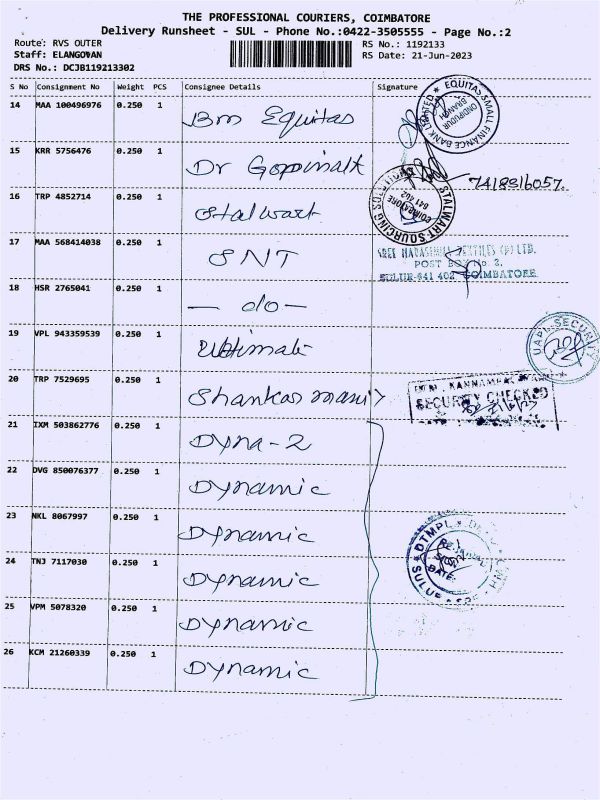 THE PROFESSIONAL COURIERS, COIMBATORE
Delivery Runsheet - SUL - Phone No.:0422-3505555 - Page No.:2
Route: RVS OUTER
RS No.: 1192133
Staff: ELANGOVAN
RS Date: 21-Jun-2023
DRS No.: DCJB119213302
S No Consignment No Weight PCS Consignee Details Signature
14 MAA 100496976 0.250 1 Bm Equitas
EQUITAS SMALL FINANCE BANK LIMITED
ONDIPUDUR BRANCH
15 KRR 5756476 0.250 1 Dr
7418916057.
16 TRP 4852714 0.250 1 Stalwart
STALWART SOURCING SOLUTIONS
COIMBATORE
641 402
17 MAA 568414038 0.250 1 SNT
SREE NARASIMHA TEXTILES (P) LTD.
POST BOX No 2,
SULUR-641 402 COIMBATORE
18 HSR 2765041 0.250 1 — do —
19 VPL 943359539 0.250 1 Ultimate
UAPL SECURITY
20 TRP 7529695 0.250 1 Shankar mani
SECURITY CHECKED
21 IXM 503862776 0.250 1 Dyna-2
22 DVG 850076377 0.250 1 Dynamic
23 NKL 8067997 0.250 1 Dynamic
DTMPL
SULUR
DATE:
24 TNJ 7117030 0.250 1 Dynamic
25 VPM 5078320 0.250 1 Dynamic
26 KCM 21260339 0.250 1 Dynamic